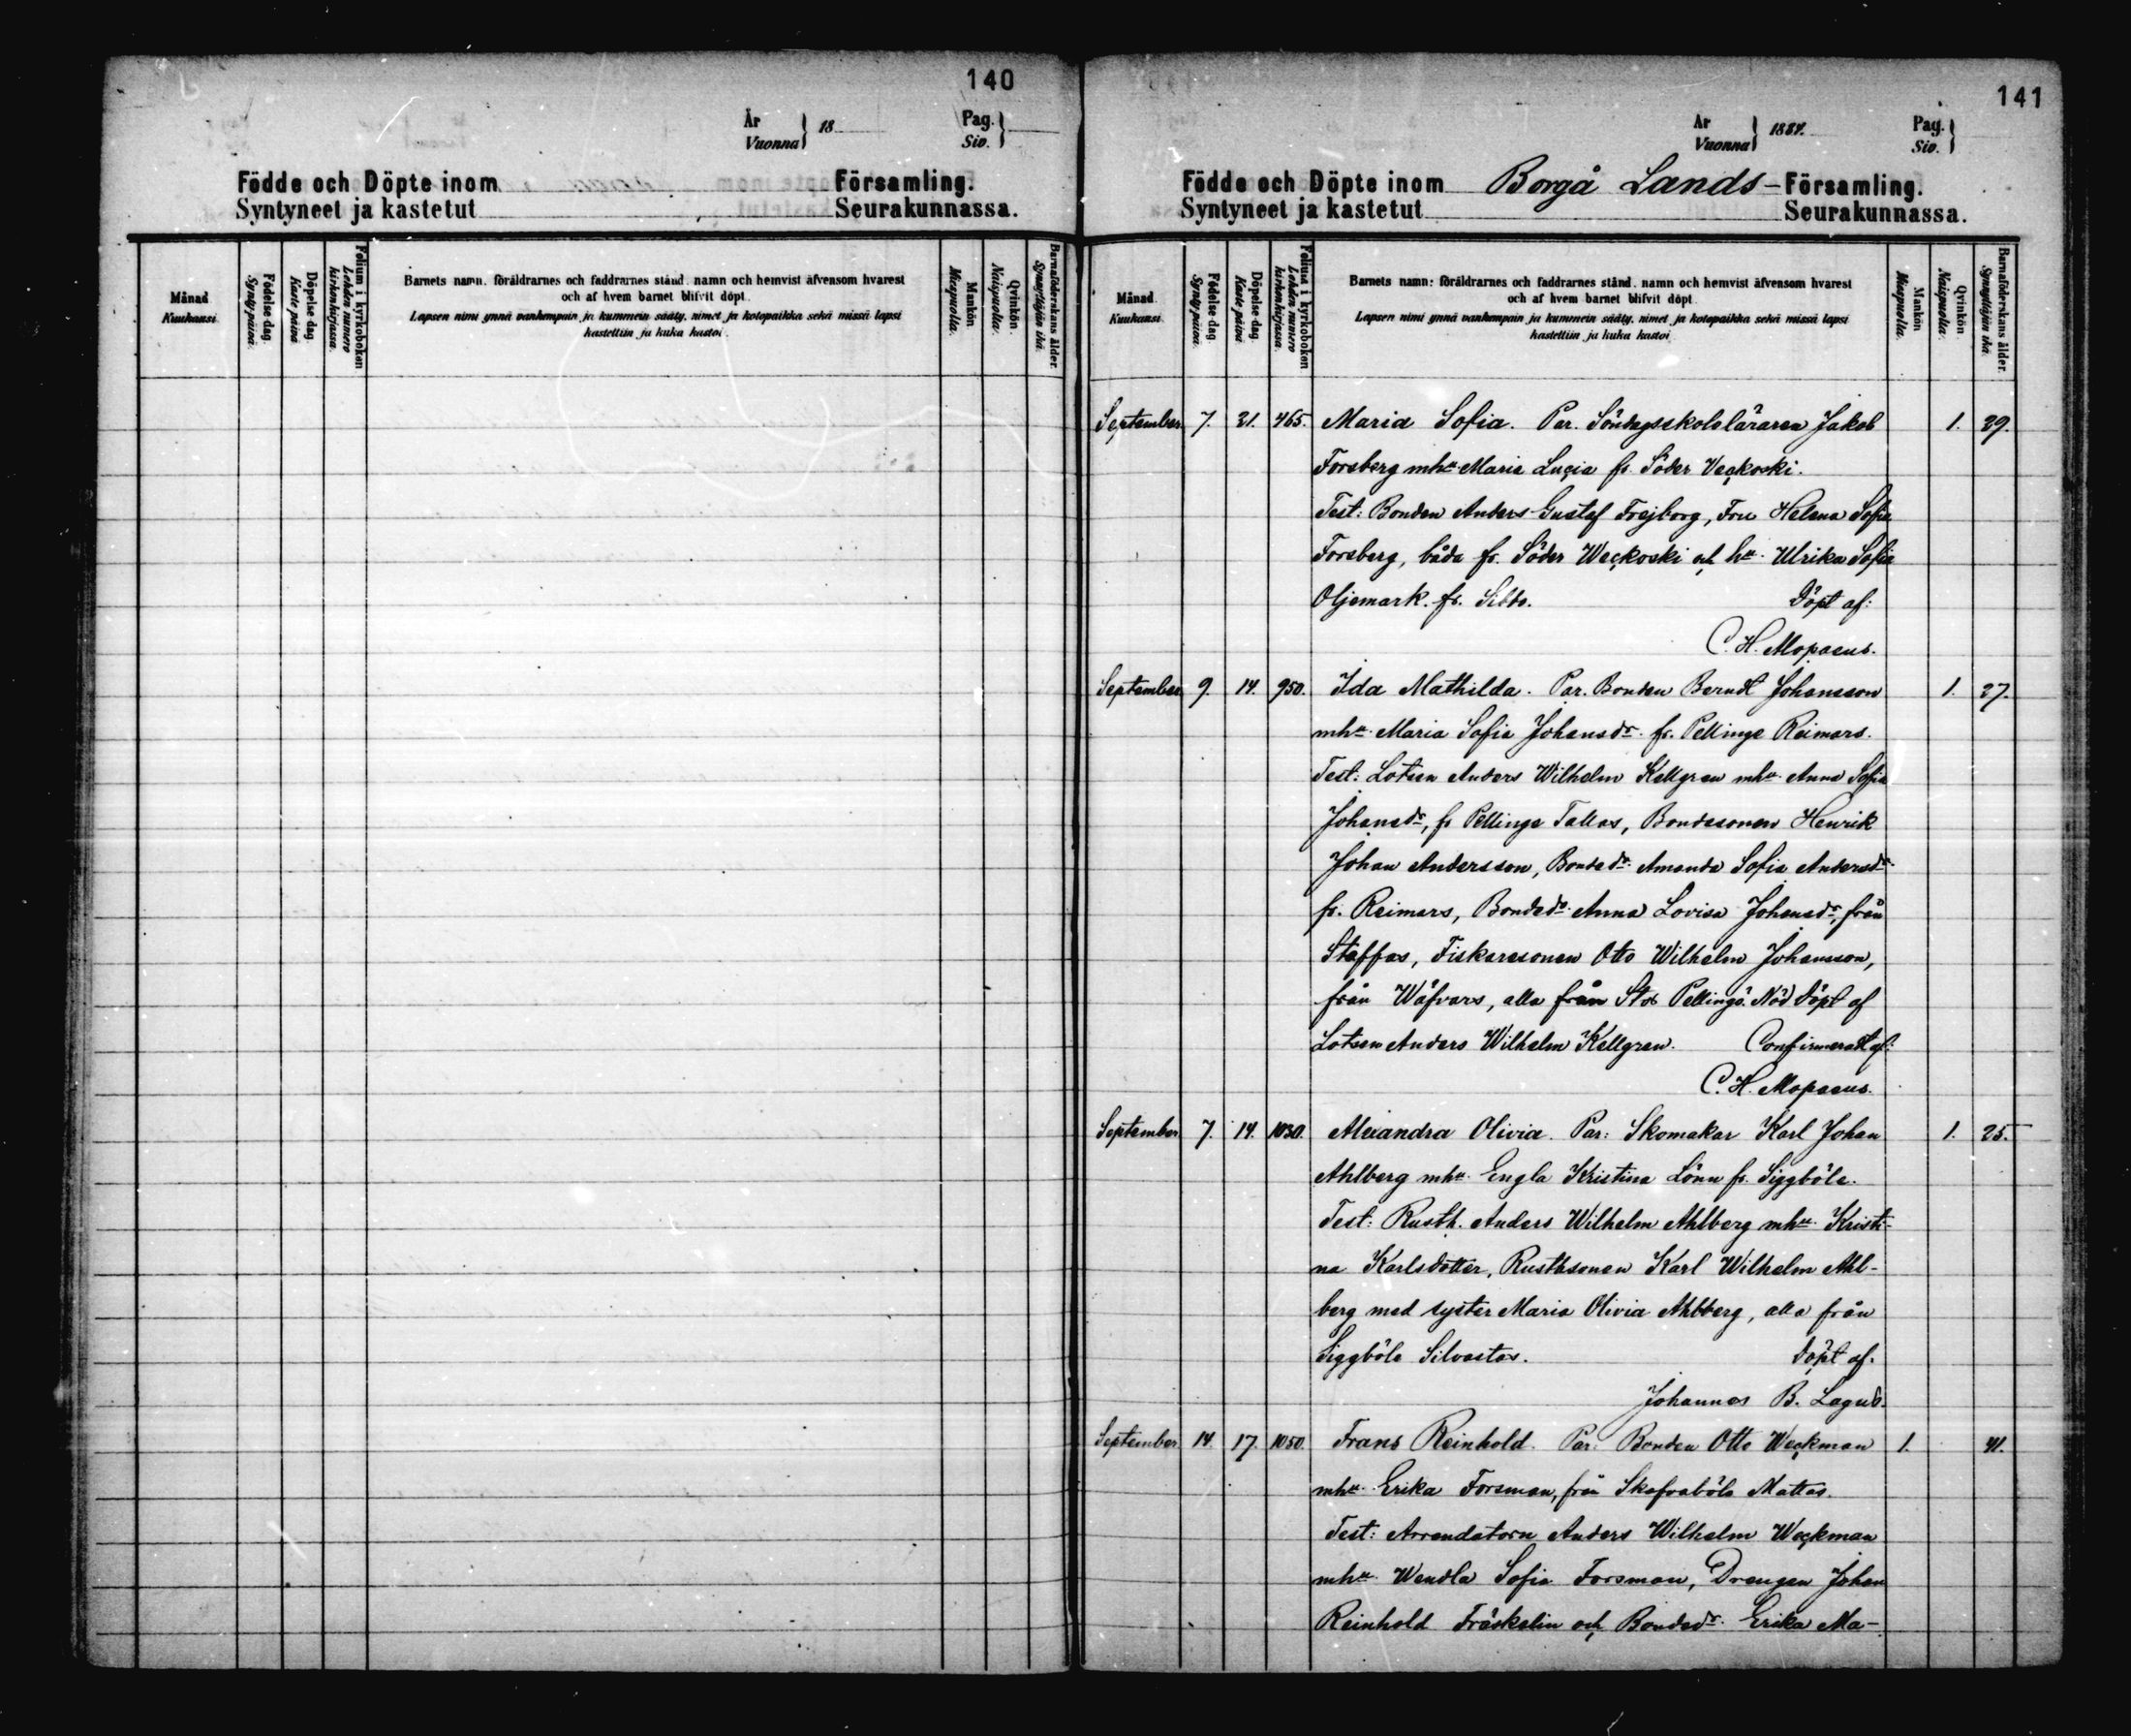 140
År
Vuonna } 18
Pag.
Siv. }
Födde och Döpte inom Församling.
Syntyneet ja kastetut Seurakunnassa.
Månad
Kuukausi
Födelse dag
Syntypäivä.
Döpelse dag
Kaste päivä
Folium i kyrkoboken
Lehden numero kirkonkirjassa.
Barnets namn, föräldrarnes och faddrarnes stånd, namn och hemvist äfvensom hvarest
och af hvem barnet blifvit döpt.
Lapsen nimi ynnä vanhempain ja kummein sääty, nimet ja kotopaikka sekä missä lapsi
kastettiin ja kuka kastoi.
Mankön
Miespuolia.
Qvinkön
Naispuolia.
Barnaföderskans ålder.
Synnyttäjän ikä.
141
År
Vuonna } 1884.
Pag.
Siv. }
Födde och Döpte inom Borgå Lands- Församling.
Syntyneet ja kastetut Seurakunnassa.
Månad
Kuukausi
Födelse dag
Syntypäivä.
Döpelse dag
Kaste päivä
Folium i kyrkoboken
Lehden numero kirkonkirjassa.
Barnets namn: föräldrarnes och faddrarnes stånd, namn och hemvist äfvensom hvarest
och af hvem barnet blifvit döpt
Lapsen nimi ynnä vanhempain ja kummein sääty, nimet ja kotopaikka sekä missä lapsi
kastettiin ja kuka kastoi
Mankön
Miespuolia.
Qvinkön
Naispuolia.
Barnaföderskans ålder.
Synnyttäjän ikä.
September 7. 21. 465. Maria Sofia. Par. Söndagsskoleläraren Jakob 1. 29.
Forsberg mhu Maria Lucia fr. Söder Veckoski.
Test: Bonden Anders Gustaf Frejborg, Fru Helena Sofia
Forsberg, båda fr. Söder Weckoski och hu. Ulrika Sofia
Oljemark. fr. Sibbo. Döpt af:
C. H. Mopaeus.
September 9. 14. 950. Ida Mathilda. Par. Bonden Berndt Johansson 1. 27.
mhu. Maria Sofia Johansdr. fr. Pellinge Reimars.
Test: Lotsen Anders Wilhelm Kellgren mhu Anna Sofia
Johansdr, fr Pellinge Tallas, Bondesonen Henrik
Johan Andersson, Bondedr. Amanda Sofia Andersdr
fr. Reimars, Bondedr. Anna Lovisa Johansdr, från
Staffas, Fiskaresonen Otto Wilhelm Johansson,
från Wäfvars, alla från Stor Pellinge. Nöd döpt af
Lotsen Anders Wilhelm Kellgren. Confirmeradt af:
C. H. Mopaeus.
September 7. 14. 1030. Alexandra Olivia. Par: Skomakar Karl Johan 1. 25.
Ahlberg mhu. Engla Kristina Lönn fr. Siggböle.
Test: Rusth. Anders Wilhelm Ahlberg mhu. Kristi-
na Karlsdotter, Rusthsonen Karl Wilhelm Ahl-
berg med syster Maria Olivia Ahlberg, alla från
Siggböle Silvastas. Döpt af.
Johannes B. Lagus.
September 14. 17. 1050. Frans Reinhold. Par: Bonden Otto Weckman 1. 41.
mhu. Erika Forsman, från Skafvaböle Mattas.
Test: Arrendatorn Anders Wilhelm Weckman
mhu. Wendla Sofia Forsman, Drengen Johan
Reinhold Fräskelin och Bondedr. Erika Ma-